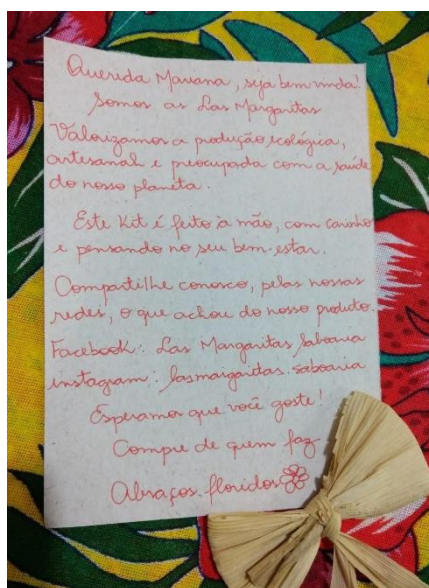 Querida Mariana, seja bem vinda!
Somos as Las Margaritas
Valorizamos a produção ecológica,
artesanal e preocupada com a saúde
do nosso planeta.
Este Kit é feito à mão, com carinho
e pensando no seu bem-estar.
Compartilhe conosco, pelas nossas
redes, o que achou do nosso produto.
Facebook: Las Margaritas Saboaria
instagram: lasmargaritas.saboaria
Esperamos que você goste!
Compre de quem faz
Abraços floridos